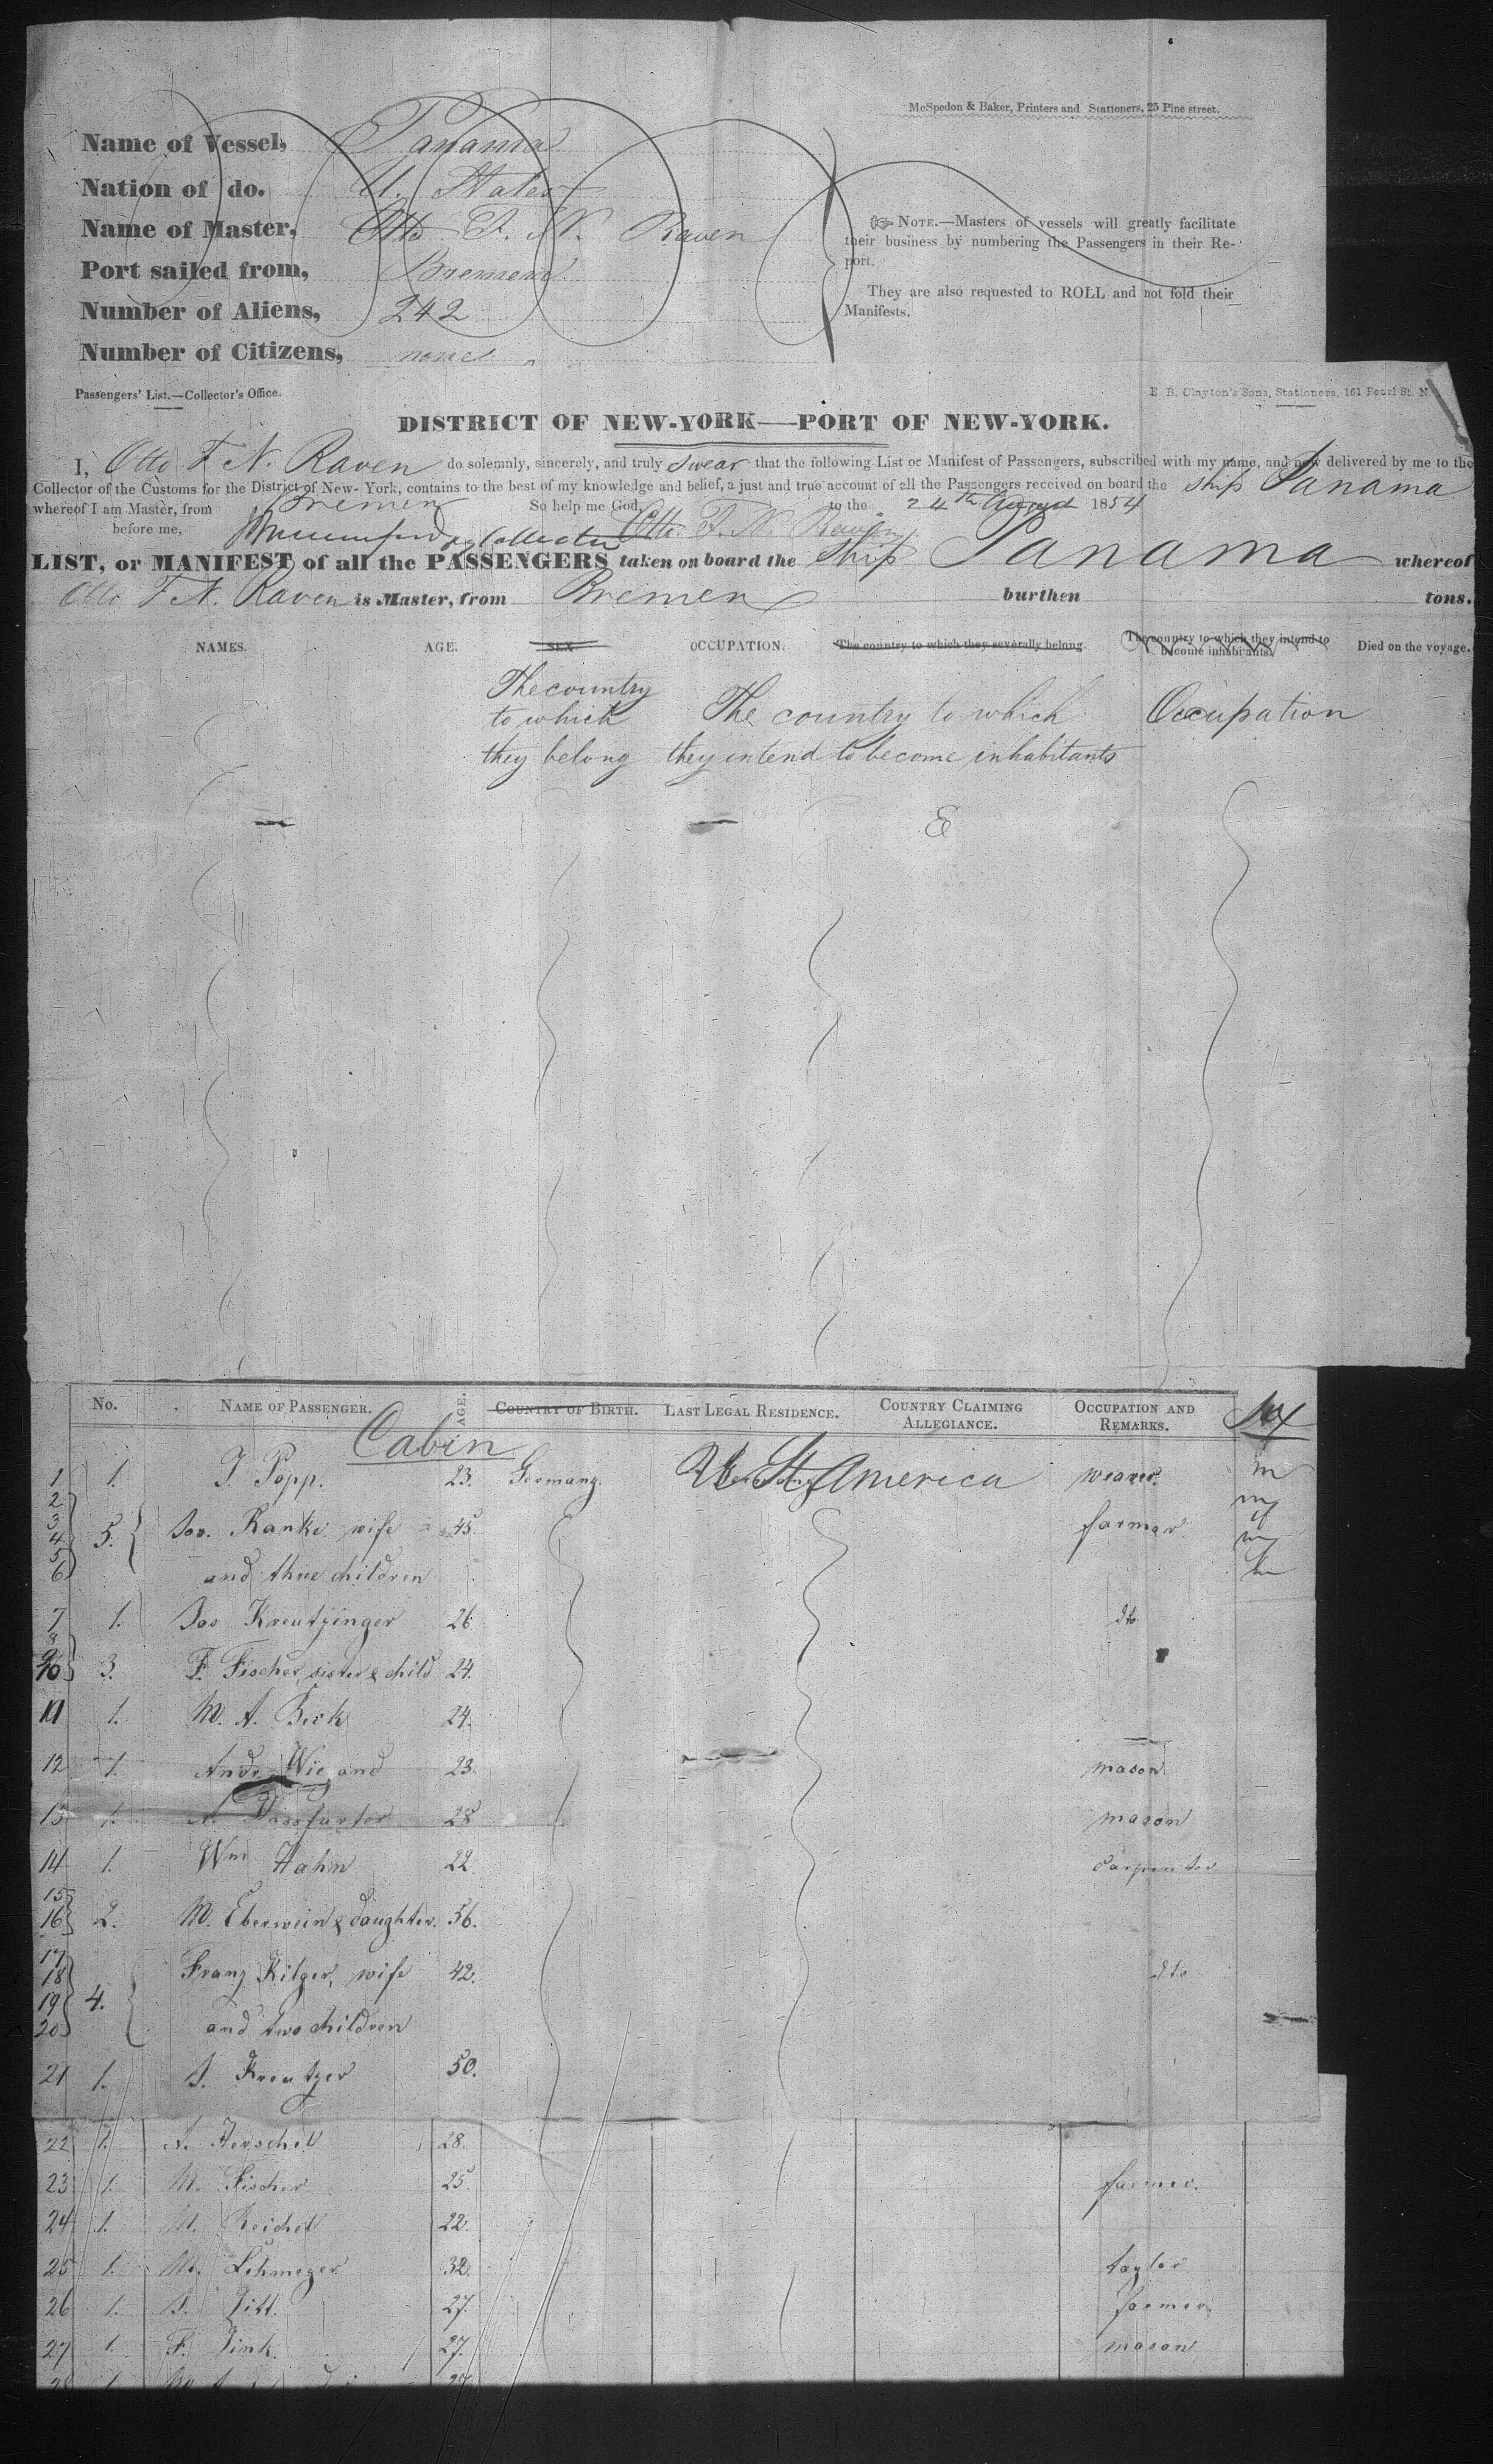 McSpedon & Baker, Printers and Stationers, 25 Pine street.
Name of Vessel, Panama
Nation of do. U. States
Name of Master, Otto F. N. Raven
Port sailed from, Bremen
Number of Aliens, 242
Number of Citizens, none
NOTE.—Masters of vessels will greatly facilitate
their business by numbering the Passengers in their Re-
port.
They are also requested to ROLL and not fold their
Manifests.
Passengers' List.—Collector's Office.
E. B. Clayton's Sons, Stationers, 161 Pearl St. N.
DISTRICT OF NEW-YORK—PORT OF NEW-YORK.
I, Otto F N. Raven do solemnly, sincerely, and truly swear that the following List or Manifest of Passengers, subscribed with my name, and now delivered by me to the
Collector of the Customs for the District of New-York, contains to the best of my knowledge and belief, a just and true account of all the Passengers received on board the ship Panama
whereof I am Master, from Bremen So help me God, to the 24th August 1854
before me, Collector Otto. F. N. Raven
LIST, or MANIFEST of all the PASSENGERS taken on board the ship Panama whereof
Otto F N. Raven is Master, from Bremen burthen tons.
NAMES. AGE. SEX OCCUPATION. The country to which they severally belong. The country to which they intend to become inhabitants. Died on the voyage.
The country to which they belong
The country to which they intend to become inhabitants
Occupation
No. NAME OF PASSENGER. AGE. COUNTRY OF BIRTH. LAST LEGAL RESIDENCE. COUNTRY CLAIMING ALLEGIANCE. OCCUPATION AND REMARKS. Sex
Cabin
1 1. J Popp. 23. Germany. U. St. America weaver. m
2 3 4 5 6 5. Jos. Ranke wife 45 farmer
and three children
7 1. Jos Kreutzinger 26 dto
8 9 10 3. F. Fischer, sister & child 24.
11 1. M. A. Beck 24.
12 1. Andr. Wiegand 23 mason.
13 1. 28 mason
14 1. Wm Hahn 22. Carpenter
15 16 2. M. Eberwein & daughter. 56.
17 18 19 20 4. Franz Kilger, wife 42. dto
and two children
21 1. S. Kreutzer 50.
22 1. A. Herschel 28.
23 1. M. Fischer 25. farmer.
24 1. M. Reichel 22.
25 1. M. Lehmeyer 32. taylor
26 1. 27. farmer.
27 1. F. Fink. 27. mason
28 1. 27